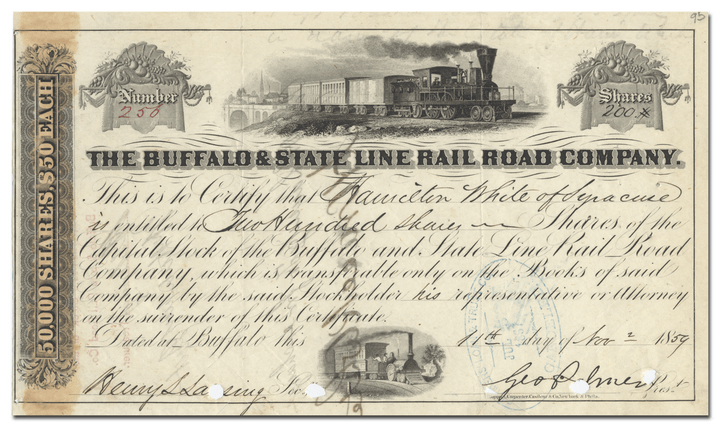 95
50,000 SHARES, $50 EACH
Number
256
Shares
200
THE BUFFALO & STATE LINE RAIL ROAD COMPANY.
This is to Certify that Hamilton White of Syracuse
is entitled to Two Hundred shares Shares of the
Capital Stock of the Buffalo and State Line Rail Road
Company, which is transferable only on the Books of said
Company by the said Stockholder his representative or Attorney
on the surrender of this Certificate.
Dated at Buffalo this 11th day of Nov 1859
Henry L Lansing
Geo Palmer Prest